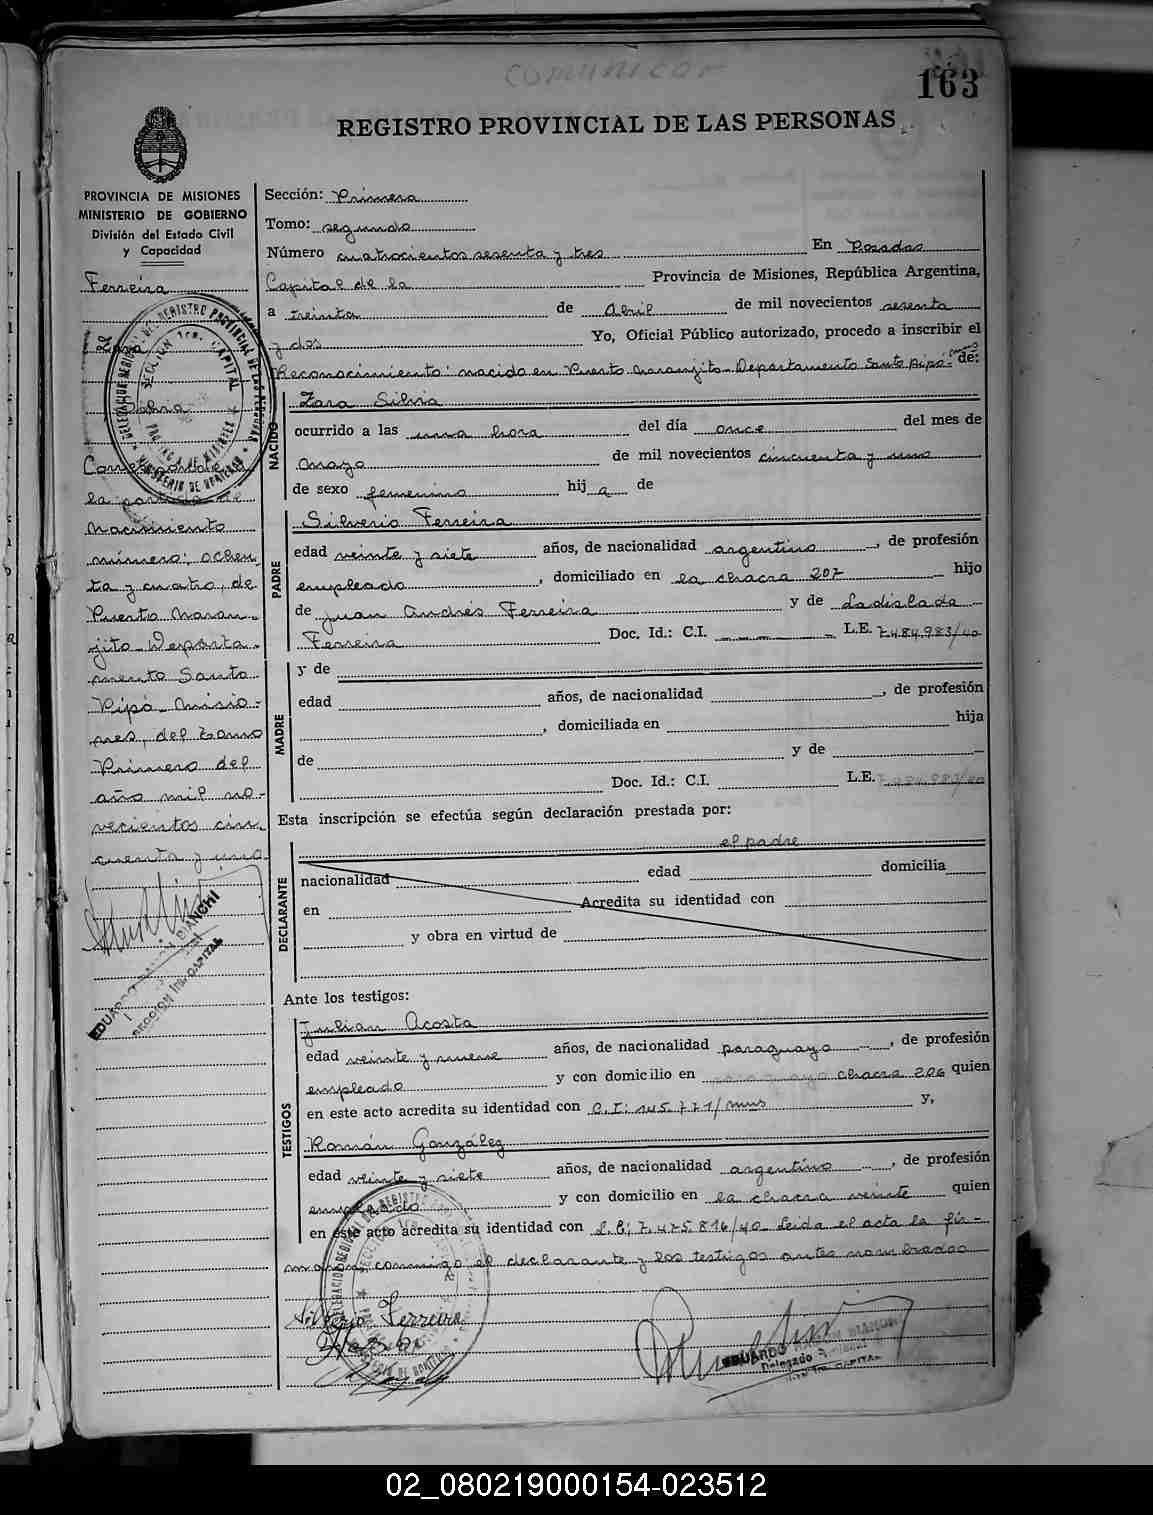 comunicar
163
REGISTRO PROVINCIAL DE LAS PERSONAS
PROVINCIA DE MISIONES
MINISTERIO DE GOBIERNO
División del Estado Civil
y Capacidad
Ferreira
Zara
Silvia
Corresponde a
la partida de
nacimiento
número: ochen
ta y cuatro, de
Puerto Naran-
jito Departa-
mento Santo
Pipó Misio-
nes, del tomo
Primero del
año mil no-
vecientos cin-
cuenta y uno
EDUARDO RAMÓN BIANCHI
SECCION 1ra. CAPITAL
Sección: Primera
Tomo: segundo
Número cuatrocientos sesenta y tres En Posadas
Capital de la Provincia de Misiones, República Argentina,
a treinta de Abril de mil novecientos sesenta
y dos Yo, Oficial Público autorizado, procedo a inscribir el
Reconocimiento: nacido en Puerto Naranjito Departamento Santo Pipó de:
NACIDO
Zara Silvia
ocurrido a las una hora del día once del mes de
mayo de mil novecientos cincuenta y uno
de sexo femenino hij a de
PADRE
Silverio Ferreira
edad veinte y siete años, de nacionalidad argentino, de profesión
empleado, domiciliado en la chacra 207 hijo
de Juan Andrés Ferreira y de Ladislada
Ferreira Doc. Id.: C.I. L.E. 7.484.983/40
MADRE
y de
edad años, de nacionalidad , de profesión
, domiciliada en hija
de y de
Doc. Id.: C.I. L.E. 7.484.983/40
Esta inscripción se efectúa según declaración prestada por:
DECLARANTE
el padre
nacionalidad edad domicilia
en Acredita su identidad con
y obra en virtud de
Ante los testigos:
TESTIGOS
Julian Acosta
edad veinte y nueve años, de nacionalidad paraguayo, de profesión
empleado y con domicilio en chacra 206 quien
en este acto acredita su identidad con C.I: 145.771/mns y,
Román González
edad veinte y siete años, de nacionalidad argentino, de profesión
empleado y con domicilio en la chacra veinte quien
en este acto acredita su identidad con L.E; 7.475.816/40 Leida el acta la fir-
man, conmigo, el declarante y los testigos antes nombrados
Silverio Ferreira
EDUARDO RAMON BIANCHI
Delegado
02_080219000154-023512